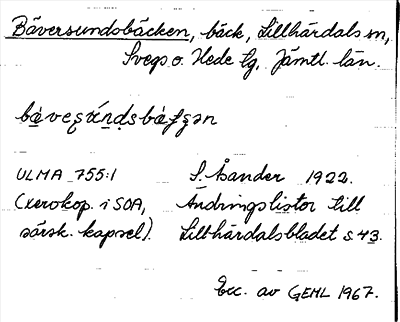 Bäversundobäcken, bäck, Lillhärdals sn,
Svegs o. Hede tg, Jämtl. län.
ULMA 755:1 S. Åander 1922.
(xerokop. i SOA, Ändringslistor till
särsk. kapsel). Lillhärdalsbladet s 43.
Exc. av GEHL 1967.